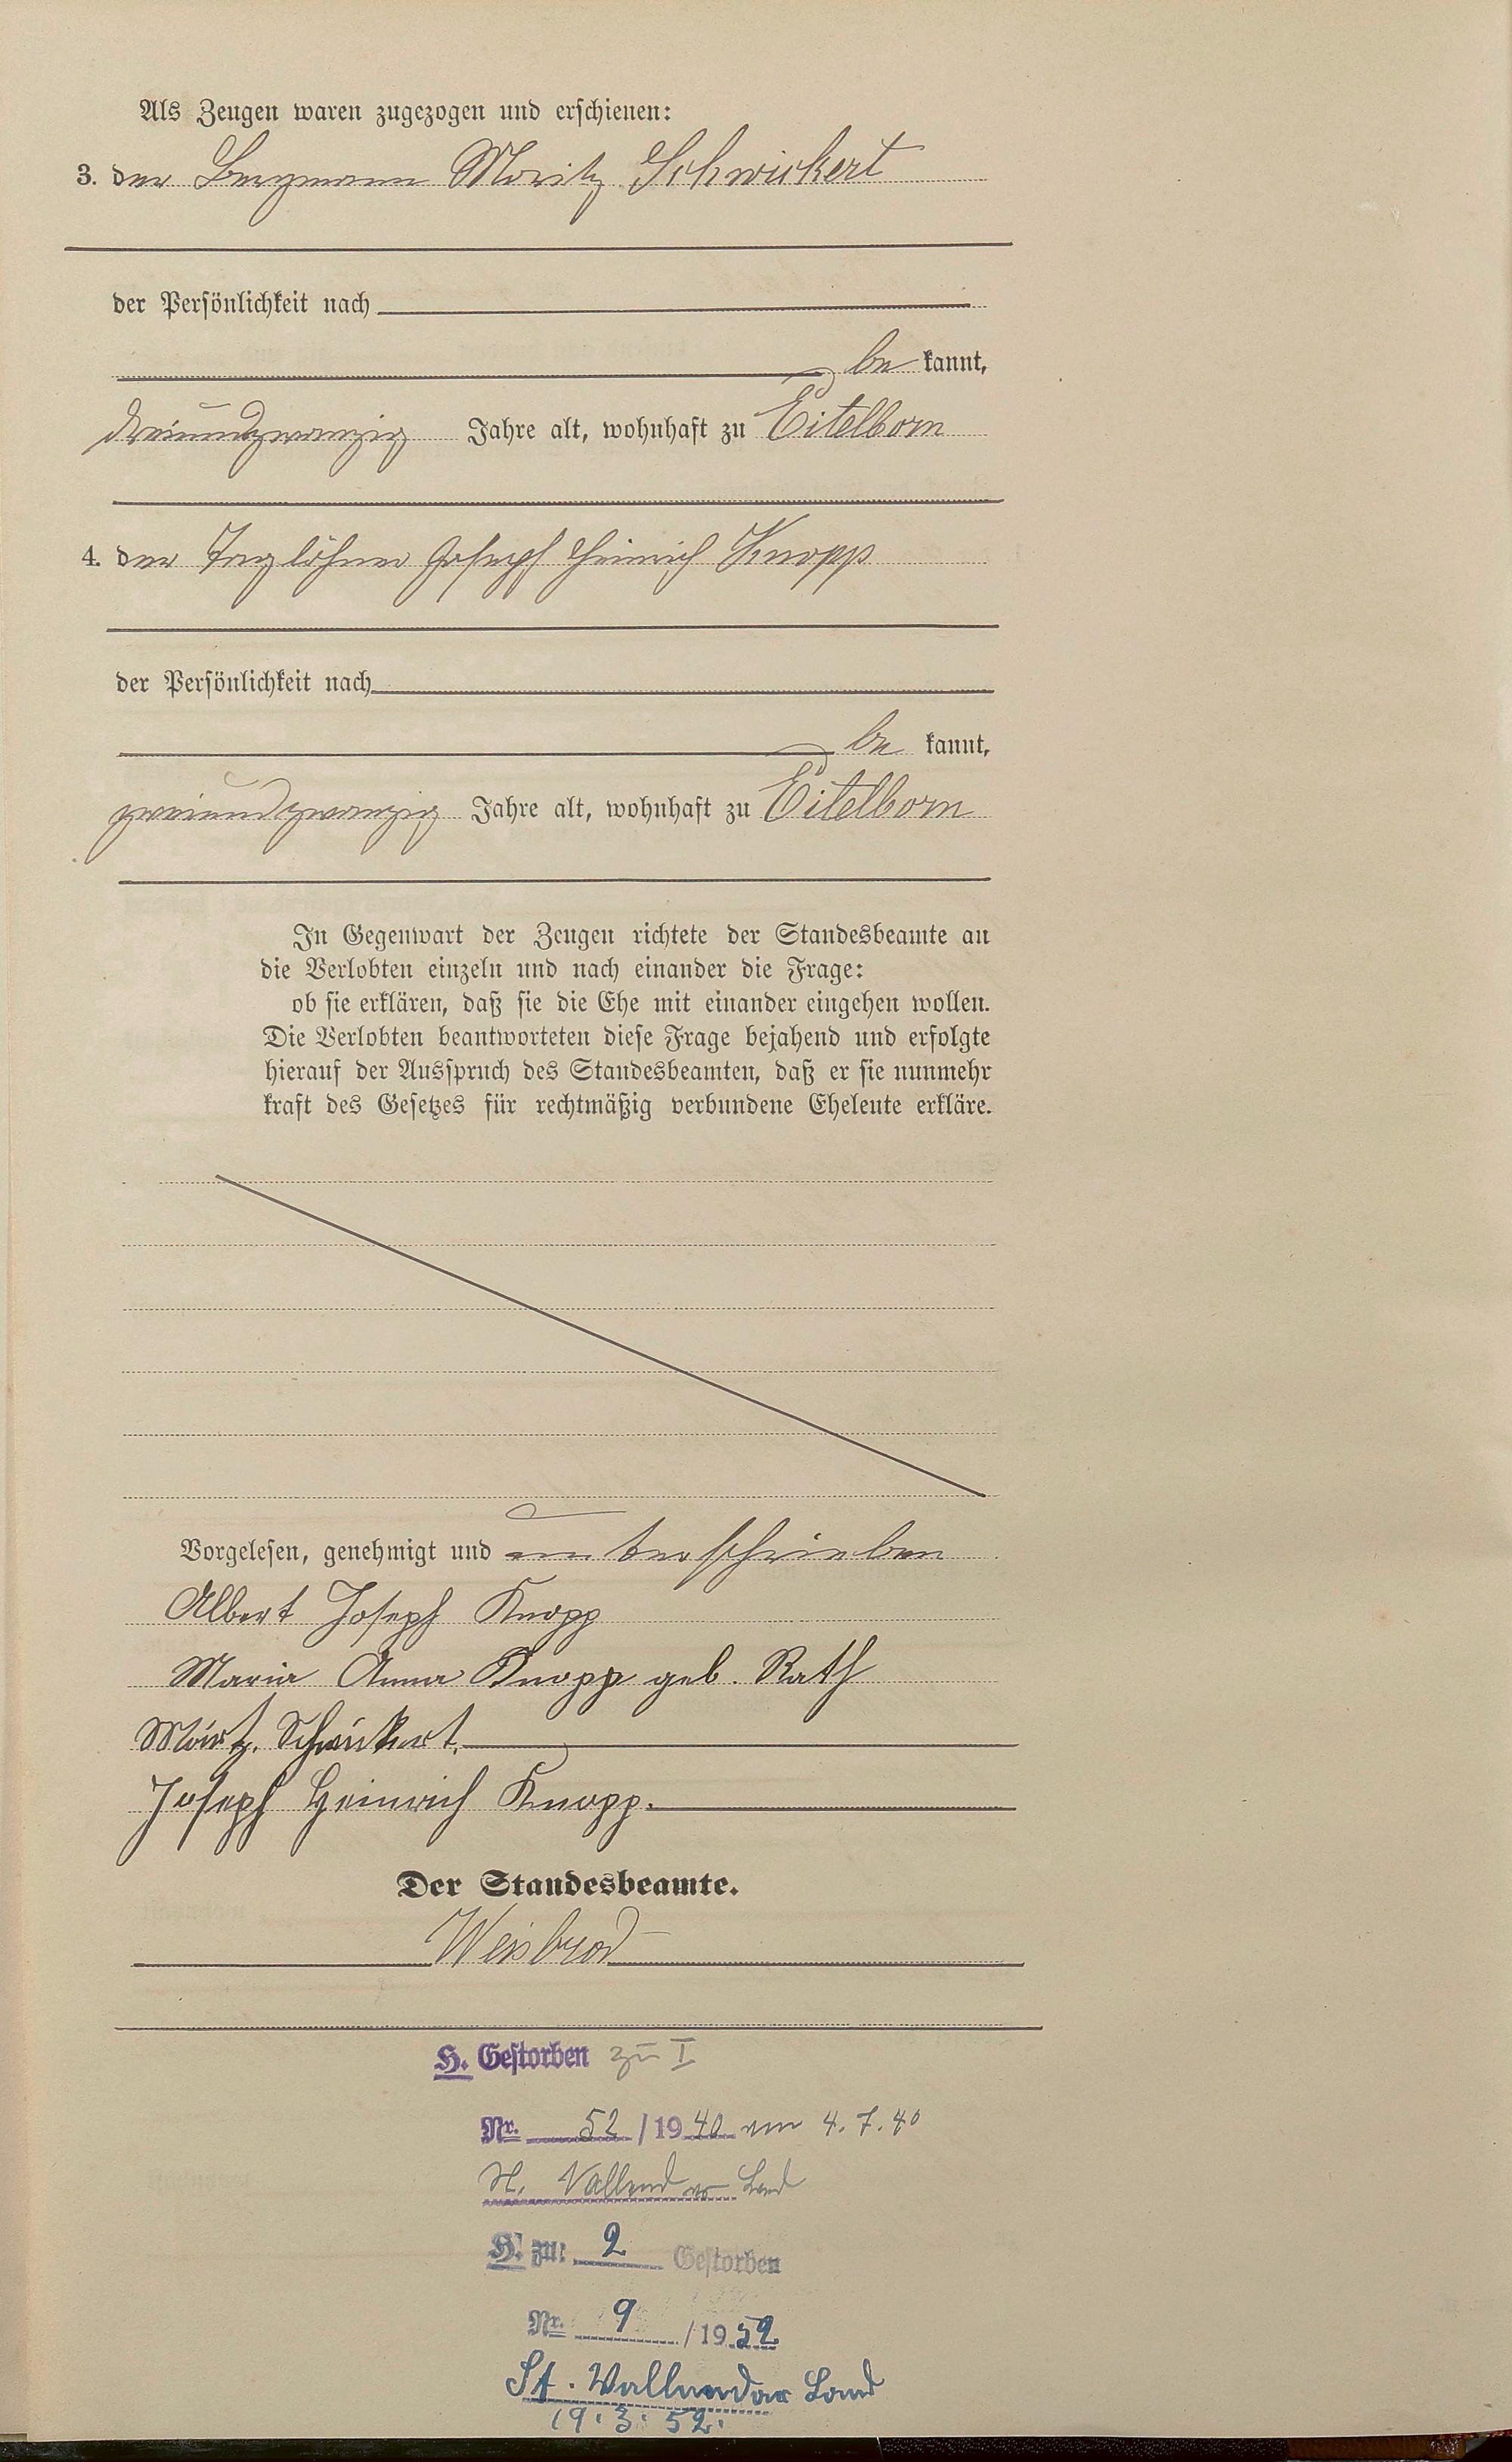 Als Zeugen waren zugezogen und erschienen:
3. der Bergmann Moritz Schwickert
der Persönlichkeit nach
be kannt,
dreiundzwanzig Jahre alt, wohnhaft zu Eitelborn
4. der Taglöhner Joseph Heinrich Knopp
der Persönlichkeit nach
be kannt,
zweiundzwanzig Jahre alt, wohnhaft zu Eitelborn
In Gegenwart der Zeugen richtete der Standesbeamte an
die Verlobten einzeln und nach einander die Frage:
ob sie erklären, daß sie die Ehe mit einander eingehen wollen.
Die Verlobten beantworteten diese Frage bejahend und erfolgte
hierauf der Ausspruch des Standesbeamten, daß er sie nunmehr
kraft des Gesetzes für rechtmäßig verbundene Eheleute erkläre.
Vorgelesen, genehmigt und unterschrieben
Albert Joseph Knopp
Maria Anna Knopp geb. Rath
Schwickert.
Joseph Heinrich Knopp.
Der Standesbeamte.
Weisbrod
H. Gestorben zu I
Nr. 52 / 1940 vom 4.7.40
Land
H. zu: 2 Gestorben
Nr. 9 / 1952
St. Vallendar Land
19.3.52.